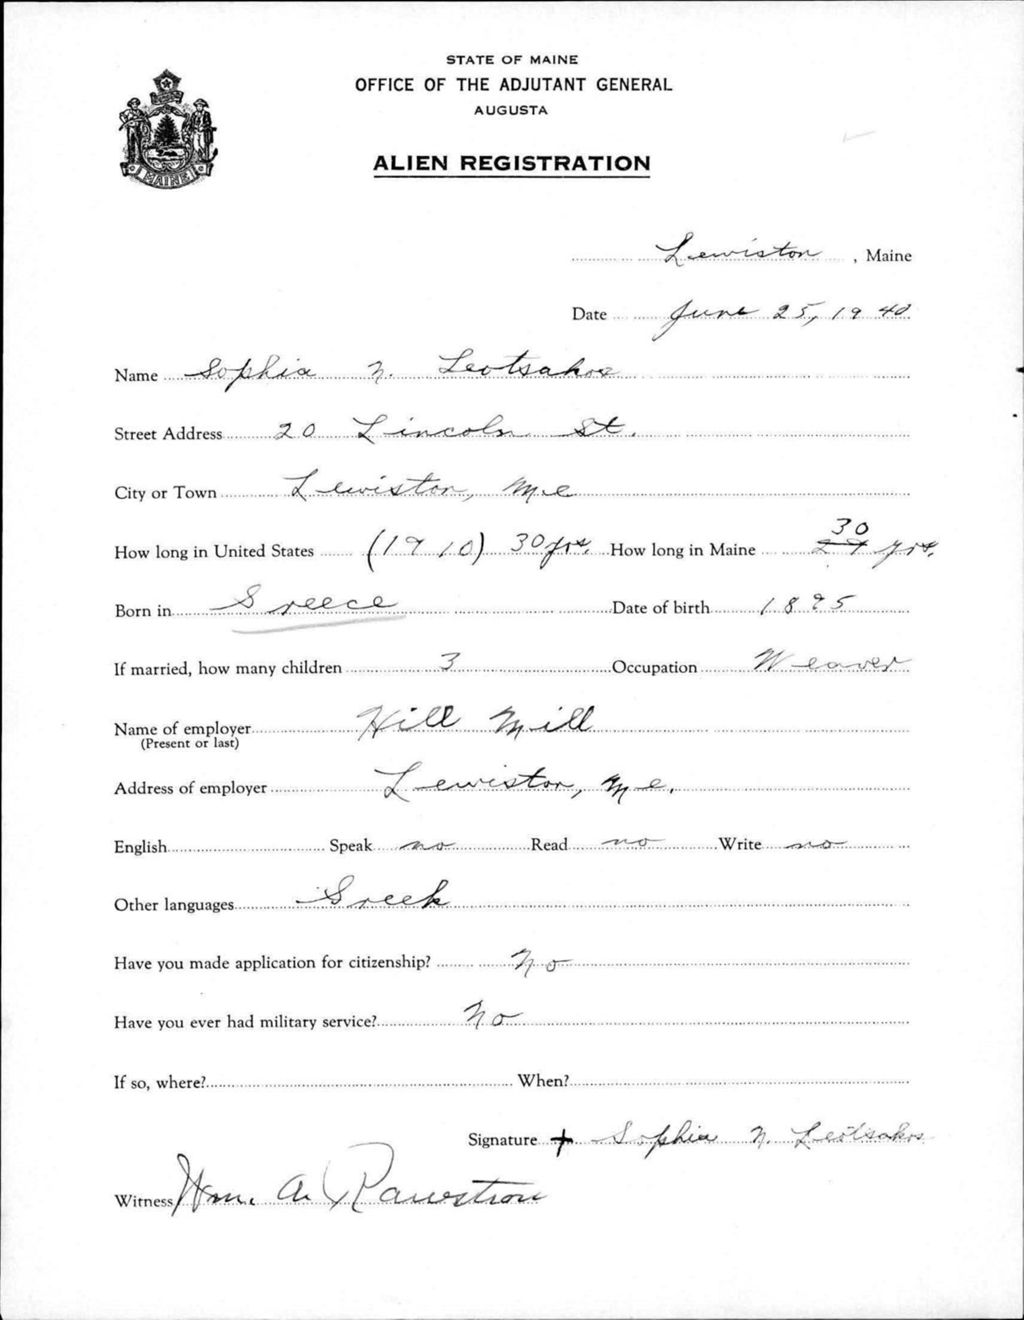 STATE OF MAINE
OFFICE OF THE ADJUTANT GENERAL
AUGUSTA
MAINE
ALIEN REGISTRATION
Lewiston, Maine
Date June 25, 1940
Name Sophia N. Leotsakos
Street Address 20 Lincoln St.
City or Town Lewiston, Me
How long in United States (1910) 30 yrs. How long in Maine 30 29 yrs.
Born in Greece Date of birth 1895
If married, how many children 3 Occupation Weaver
Name of employer Hill Mill
(Present or last)
Address of employer Lewiston, Me.
English Speak no Read no Write no
Other languages Greek
Have you made application for citizenship? No
Have you ever had military service? No
If so, where? When?
Signature + Sophia N. Leotsakos
Witness Wm. A. Rawstron